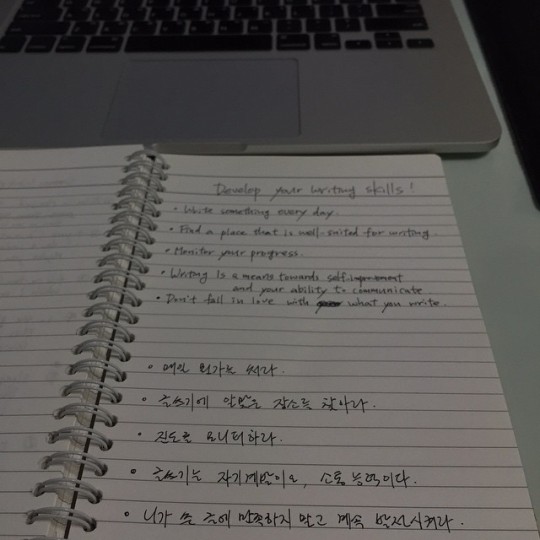 Develop your writing skills!
• Write something every day.
• Find a place that is well-suited for writing.
• Monitor your progress.
• Writing is a means towards self-improvement
and your ability to communicate
• Don't fall in love with what you write.
• 매일 뭔가는 써라.
• 글쓰기에 알맞은 장소를 찾아라.
• 진도를 모니터하라.
• 글쓰기는 자기계발이요, 소통 능력이다.
• 니가 쓴 글에 만족하지 말고 계속 발전시켜라.